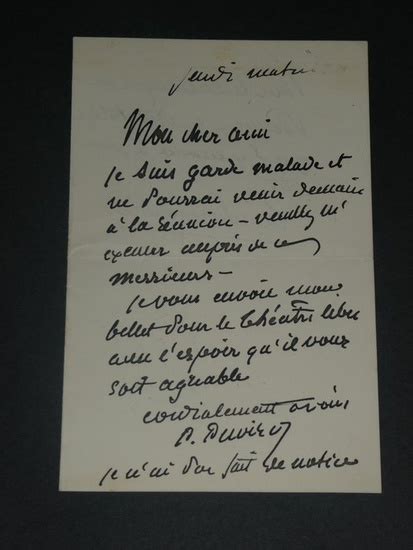 jeudi matin
Mon cher ami
je suis garde malade et
ne pourrai venir demain
à la réunion – veuillez m'
excuser auprès de ces
messieurs –
Je vous envoie mon
billet pour le théâtre libre
avec l'espoir qu'il vous
soit agréable
cordialement à vous
je n'ai pas fait de notice